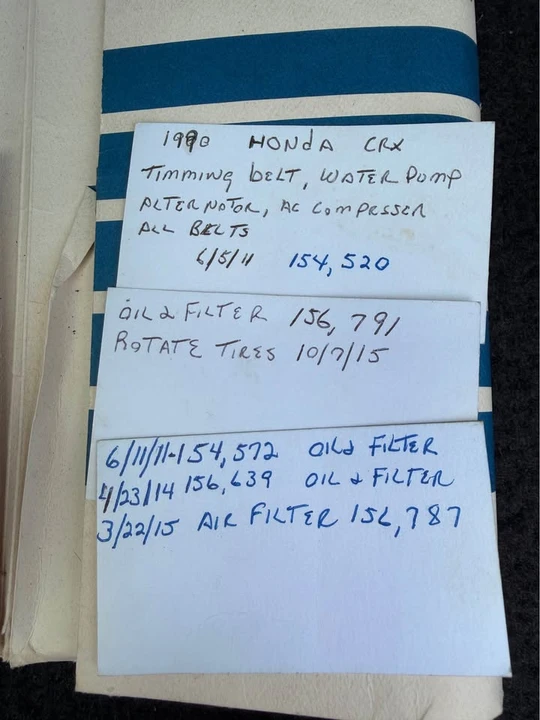 1990 HONDA CRX
TIMMING BELT, WATER PUMP
ALTERNATOR, AC COMPRESSER
ALL BELTS
6/5/11 154,520
OIL & FILTER 156,791
ROTATE TIRES 10/7/15
6/11/11-154,572 OIL & FILTER
4/23/14 156,639 OIL & FILTER
3/22/15 AIR FILTER 156,787